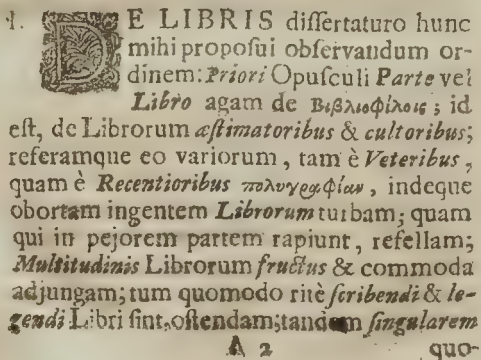 1. DE LIBRIS differtaturo hunc
mihi propoſui obſervandum or-
dinem: Priori Opuſculi Parte vel
Libro agam de Βιβλιοφίλοις; id
eſt, de Librorum æſtimatoribus & cultoribus;
referamque eo variorum, tam è Veteribus,
quam è Recentioribus πολυγραφίαν, indeque
obortam ingentem Librorum turbam; quam
qui in pejorem partem rapiunt, refellam;
Multitudinis Librorum fructus & commoda
adjungam; tum quomodo ritè ſcribendi & le-
gendi Libri ſint, oſtendam; tandem ſingularem
A 2 quo-